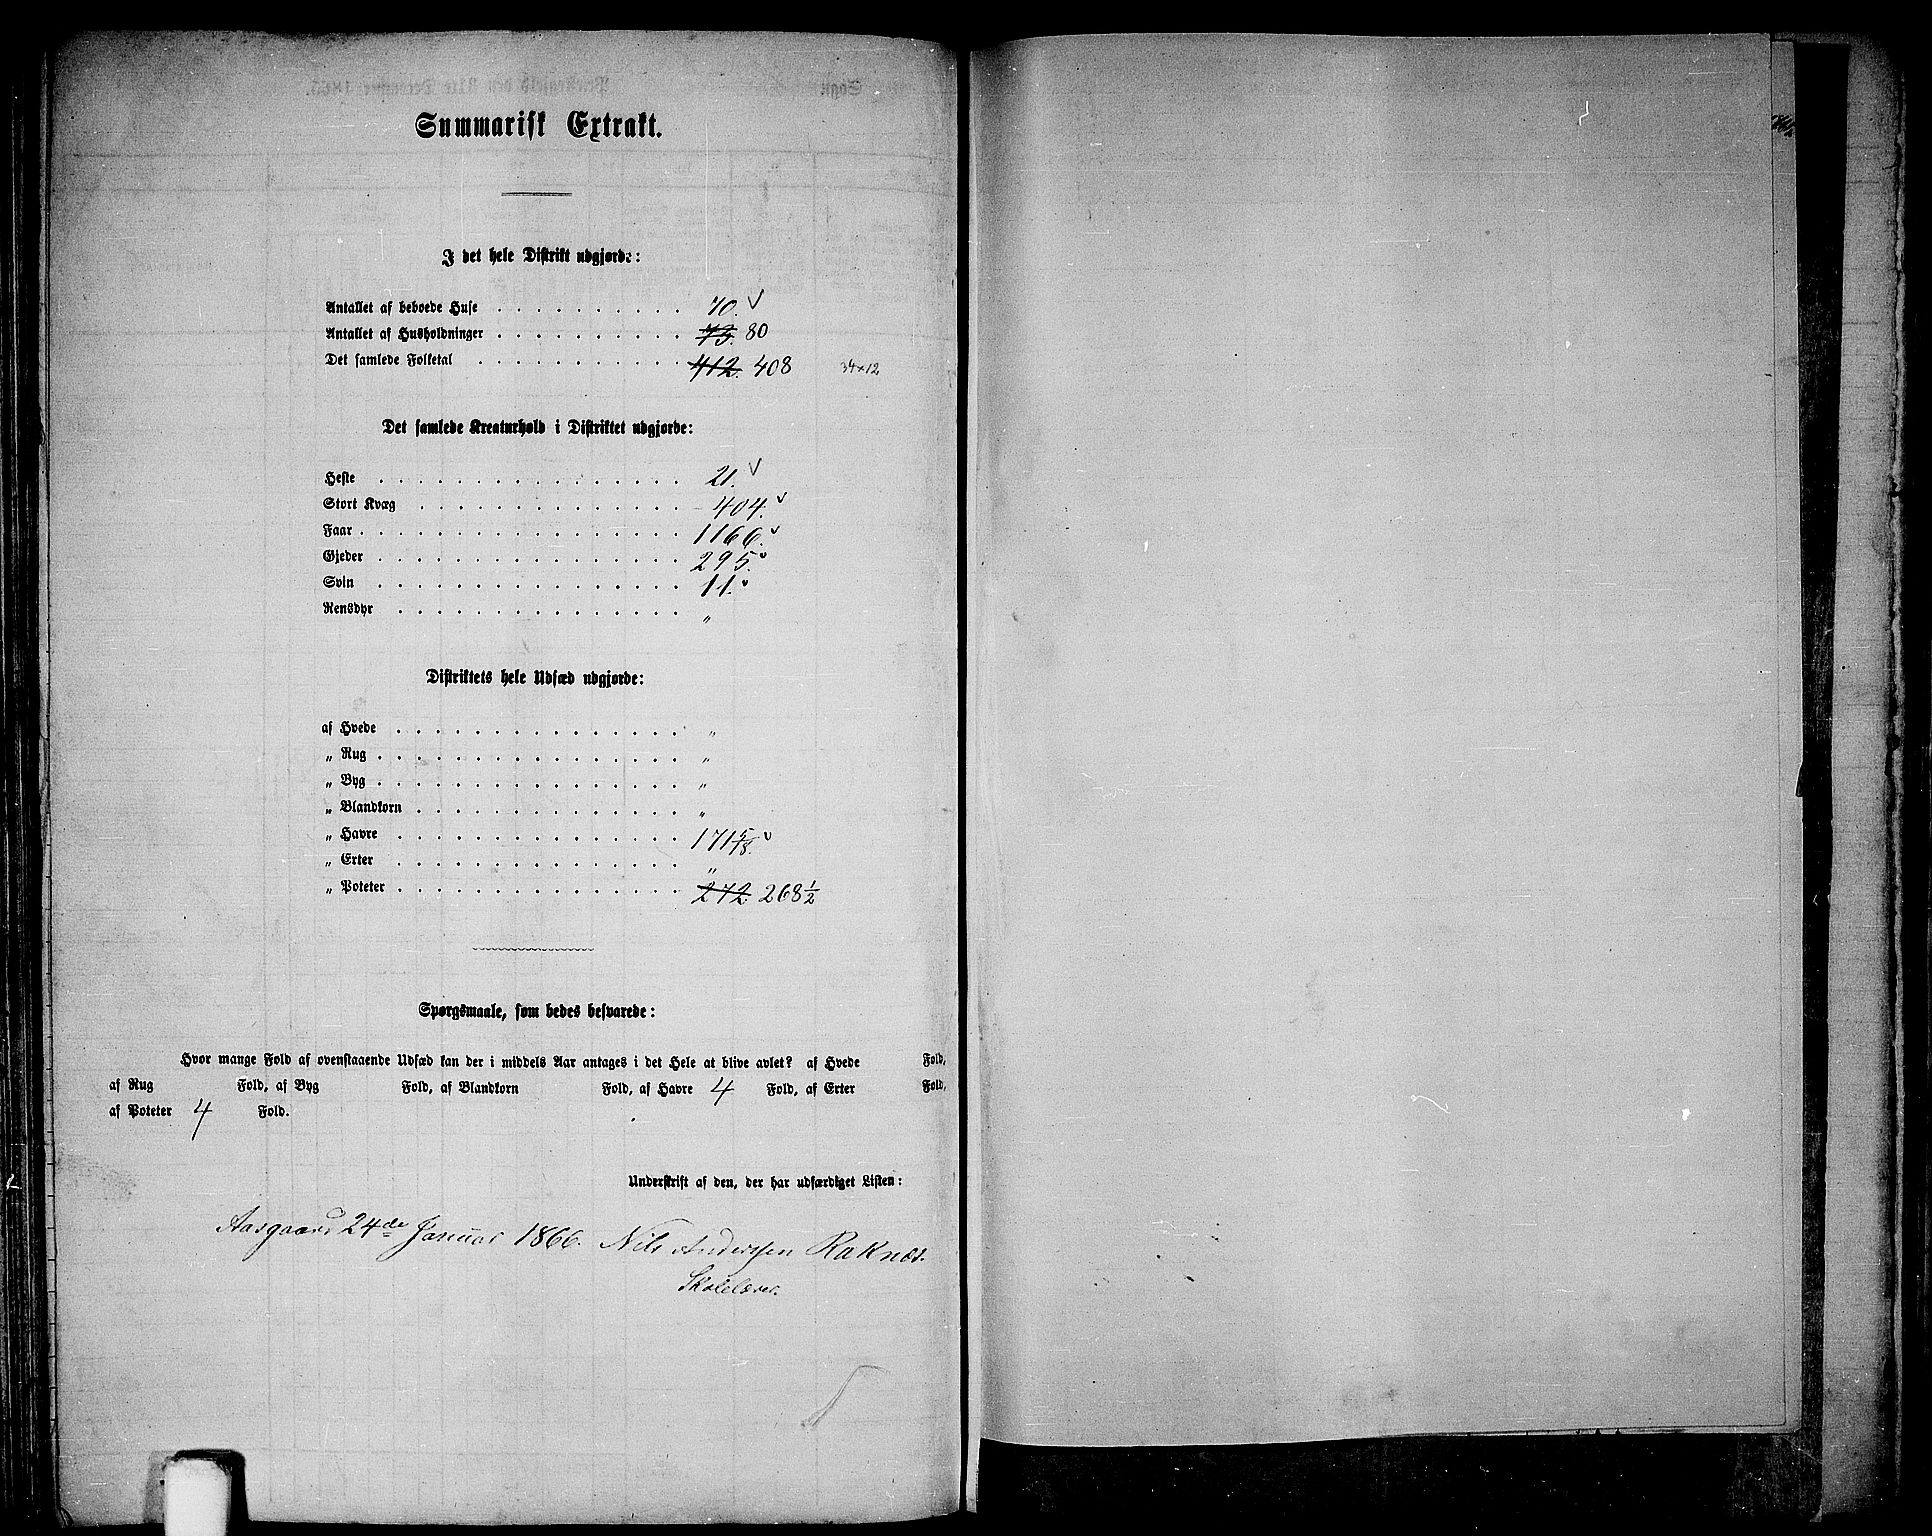 Summarisk Extrakt.
I det hele Distrikt udgjorde:
Antallet af beboede Huse . . . . . . . . . . 70. ✓
Antallet af Husholdninger . . . . . . . . . . 73. 80
Det samlede Folketal . . . . . . . . . . 412. 408 34+12
Det samlede Kreaturhold i Distriktet udgjorde:
Heste . . . . . . . . . . 21. ✓
Stort Kvæg . . . . . . . . . . 404. ✓
Faar . . . . . . . . . . 1166. ✓
Gjeder . . . . . . . . . . 295. ✓
Svin . . . . . . . . . . 11. ✓
Rensdyr . . . . . . . . . . „
Distriktets hele Udsæd udgjorde:
af Hvede . . . . . . . . . . „
„ Rug . . . . . . . . . . „
„ Byg . . . . . . . . . . „
„ Blandkorn . . . . . . . . . . „
„ Havre . . . . . . . . . . 171 5/18. ✓
„ Erter . . . . . . . . . . „
„ Poteter . . . . . . . . . . 272 268 1/2
Spørgsmaale, som bedes besvarede:
Hvor mange Fold af ovenstaaende Udsæd kan der i middels Aar antages i det Hele at blive avlet? af Hvede Fold,
af Rug Fold, af Byg Fold, af Blandkorn Fold, af Havre 4 Fold, af Erter Fold,
af Poteter 4 Fold.
Underskrift af den, der har udfærdiget Listen:
Aasgaard 24de Januar 1866. Nils Anderssen Raknes.
Skolelærer.